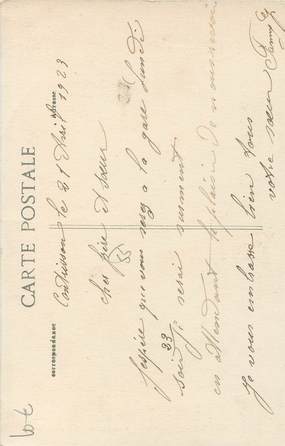 CARTE POSTALE
Correspondance
Adresse
Contrisson le 21 Avril 1923
Cher frère et sœur
J'espère que vous serez a la gare lundi
23
soir j'i serai surement
en attendant le plaisir de nous revoir
Je vous embrasse bien tous
votre sœur Fanny